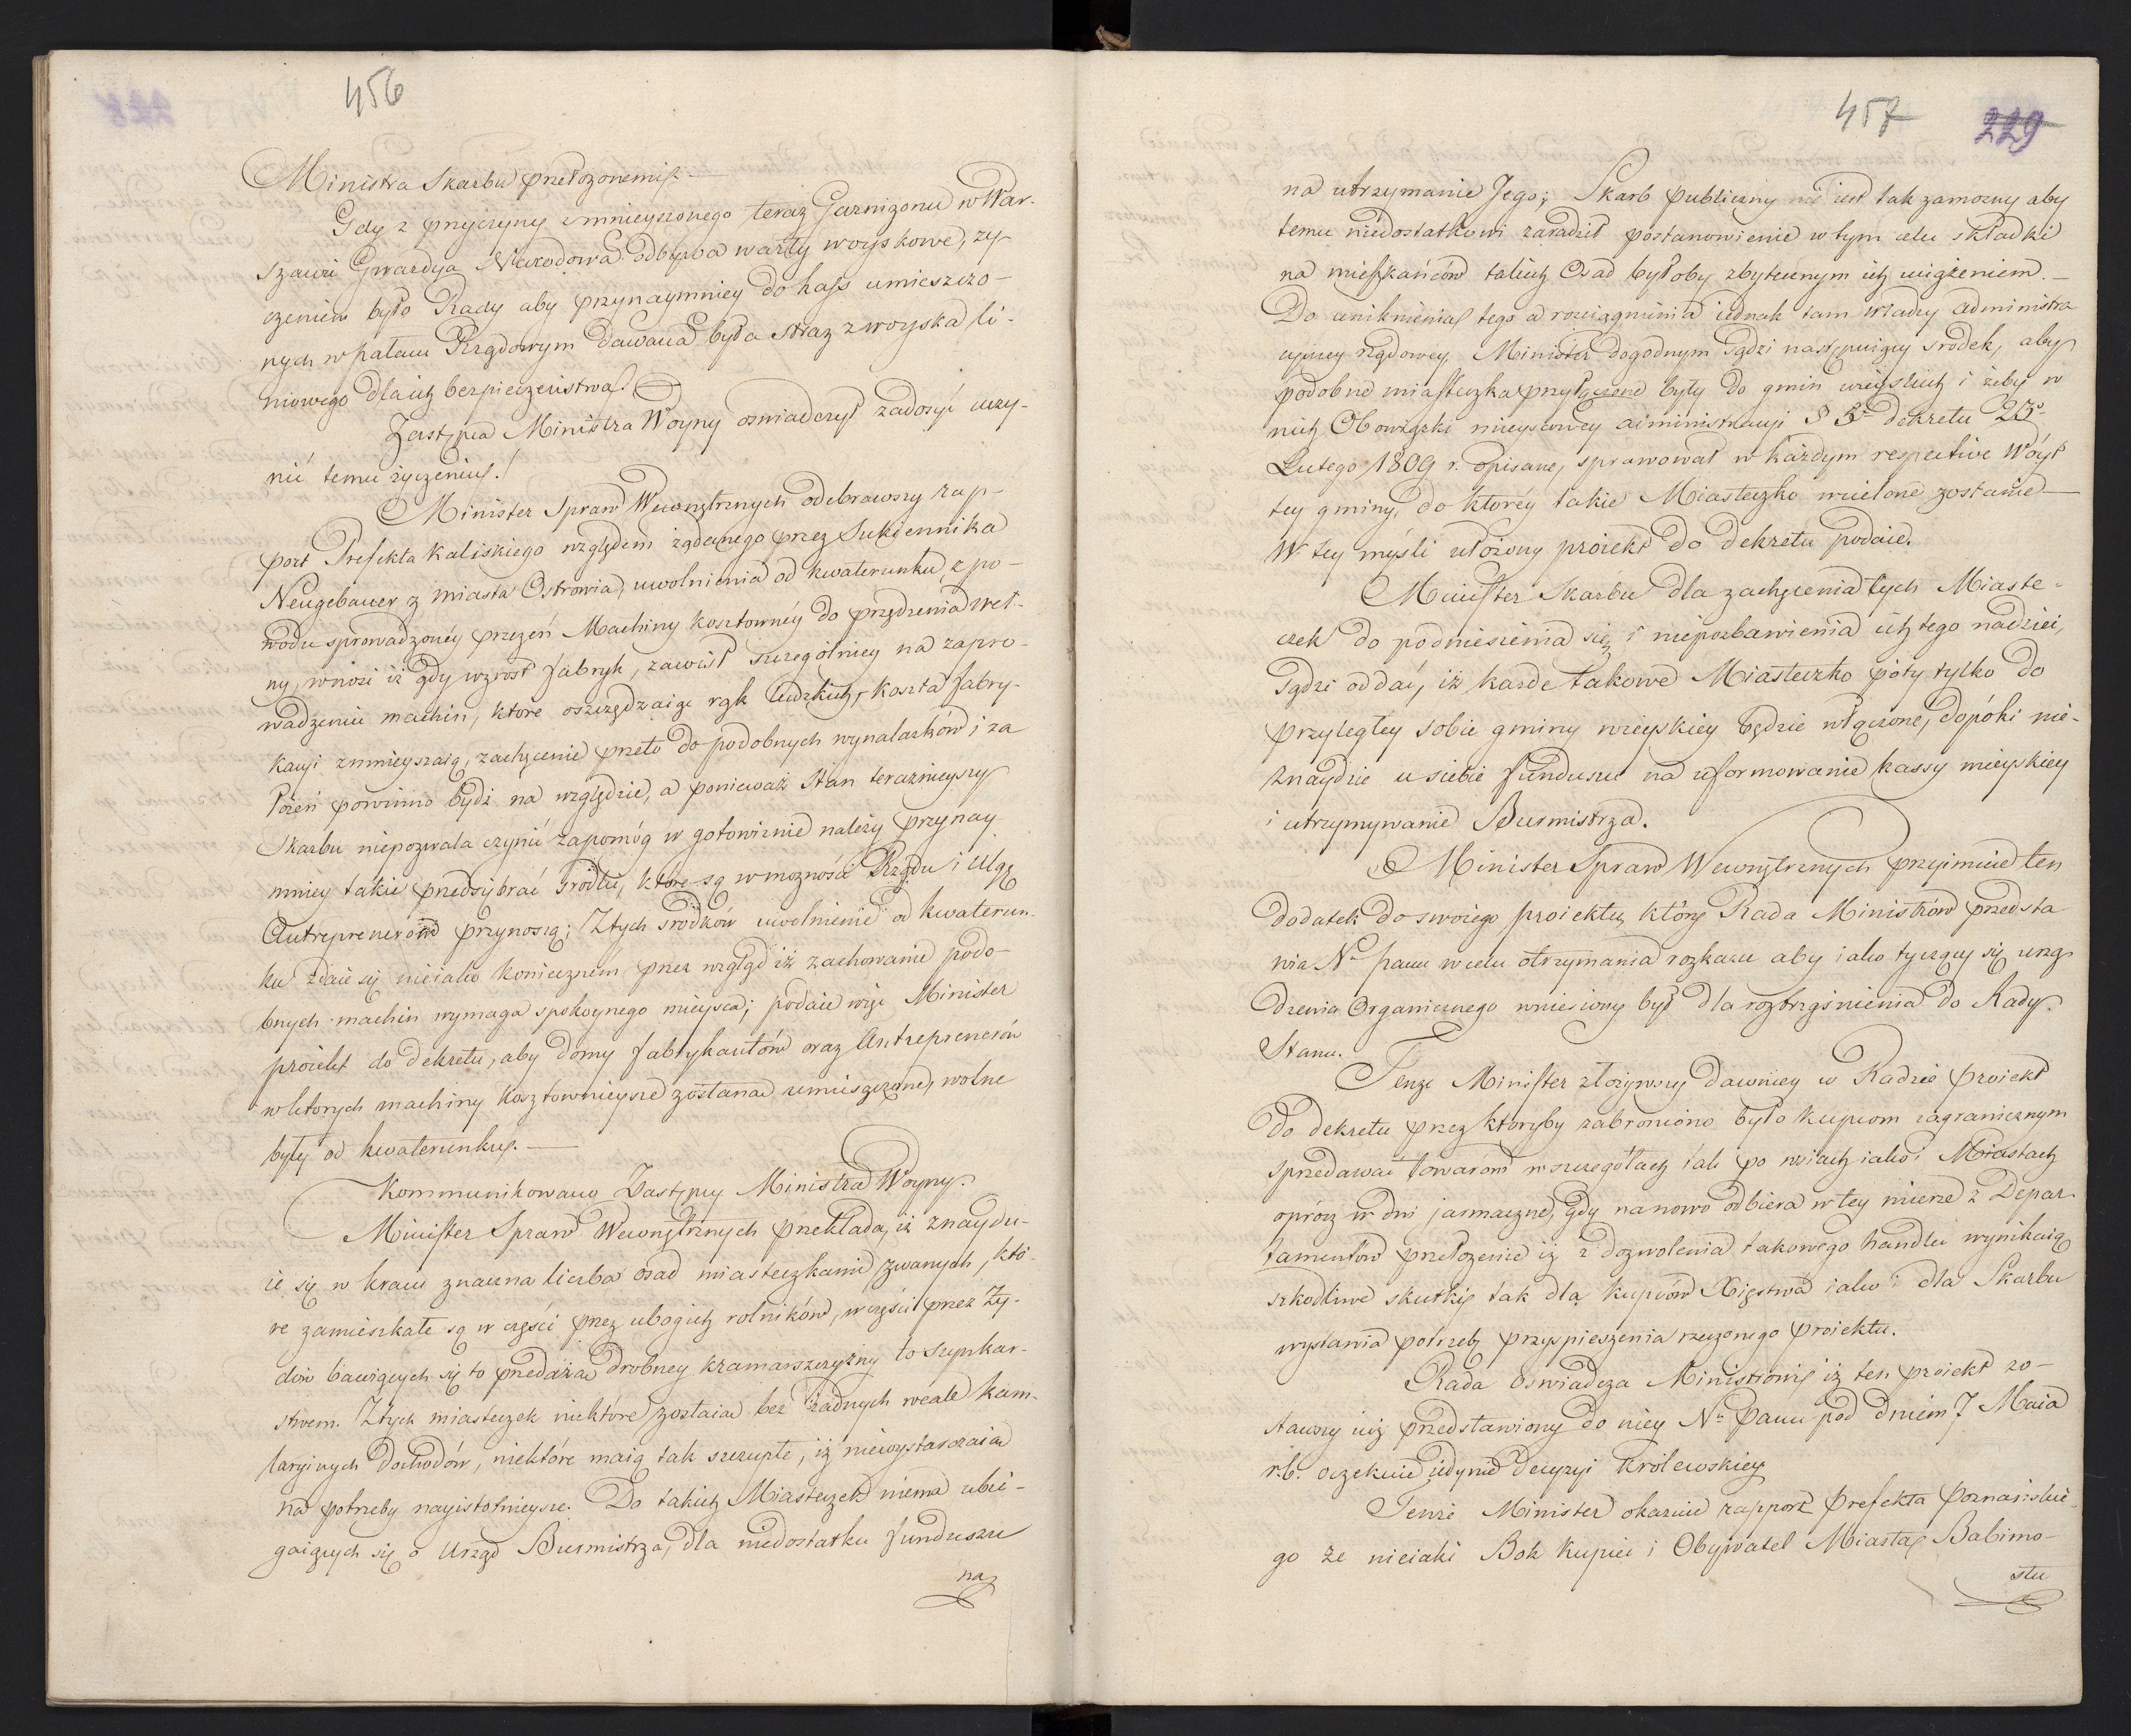 456
Ministra Skarbu przełożonemi. —
Gdy z przyczyny zmnieyszonego teraz Garnizonu w War-
szawie Gwardya Narodowa odbywa warty woyskowe, ży-
czeniem było Rady aby przynaymniey do kass umieszczo-
nych w pałacu Rządowym dawana była straż z woyska li-
niowego dla ich bezpieczeństwa.
Zastępca Ministra Woyny oświadczył zadosyć uczy-
nić temu życzeniu.
Minister Spraw Wewnętrznych odebrawszy rap-
port Prefekta Kaliskiego względem żądanego przez Sukiennika
Neugebauer z miasta Ostrowia, uwolnienia od kwaterunku, z po-
wodu sprowadzonéy przezeń Machiny kosztownéy do przędzenia weł-
ny, wnosi iż gdy wzrost fabryk, zawisł szczególniey na zapro-
wadzeniu machin, które oszczędzaiąc rąk ludzkich, koszta fabry-
kacyi zmnieyszaią, zachęcenie przeto do podobnych wynalazków i za
łożeń powinno bydź na względzie, a ponieważ Stan teraznieyszy
Skarbu niepozwala czynić zapomóg w gotowiznie należy przynay-
mniey takie przedsiębrać środki, które są w możności Rządu i ulgę
Antreprenerów przynoszą; Z tych środków uwolnienie od kwaterun-
ku zdaie się nieiako koniecznem przez wzgląd iż zachowanie podo-
bnych machin wymaga spokoynego mieysca; podaie więc Minister
proiekt do dekretu, aby domy fabrykantów oraz Antreprenerów
w ktorych machiny kosztownieysze zostaną umieszczone, wolne
były od kwaterunku. —
Kommunikowano Zastępcy Ministra Woyny.
Minister Spraw Wewnętrznych przekłada, iż znaydu-
ie się w kraiu znaczna liczba osad miasteczkami zwanych, któ-
re zamieszkałe są w części przez ubogich rolników, w części przez Ży-
dów bawiących się to przedażą drobney kramarszczyzny to szynkar-
stwem. Z tych miasteczek niektóre zostaią bez żadnych wcale kam-
laryinych dochodów, niektóre maią tak szczupłe, iż niewystarczaią
na potrzeby nayistotnieysze. Do takich Miasteczek niema ubie-
gaiących się o Urząd Burmistrza, dla niedostatku funduszu
na
457 229
na utrzymanie Jego; Skarb publiczny nie iest tak zamożny aby
temu niedostatkowi zaradził postanowienie w tym celu składki
na mieszkańców takich Osad byłoby zbytecznym ich uciążeniem. —
Do uniknienia tego a rozciągnienia iednak tam władzy administra
cyiney rządowey Minister dogodnym sądzi następuiący srodek, aby
podobne miasteczka przyłączone były do gmin wieyskich i żeby w
nich Obowiązki mieyscowey administracyi § 5m dekretu 23o
Lutego 1809 r. opisane, sprawował w każdym respective Wóyt
tey gminy, do któréy takie Miasteczko wcielone zostanie —
W tey myśli ułożony proiekt do dekretu podaie.
Minister Skarbu dla zachęcenia tych Miaste-
czek do podniesienia się i niepozbawienia ich tego nadziei,
sądzi oddać, iż każde takowe Miasteczko póty tylko do
przyległey sobie gminy wieyskiey będzie włączone, dopóki nie-
znaydzie u siebie funduszu na uformowanie kassy mieyskiey
i utrzymywanie Burmistrza.
Minister Spraw Wewnętrznych przyimuie ten
dodatek do swoiego proiektu, który Rada Ministrów przedsta
wia No panu w celu otrzymania rozkazu aby iako tyczący się urzą-
dzenia Organicznego wniesiony był dla roztrząśnienia do Rady
Stanu.
Tenże Minister złożywszy dawniey w Radzie proiekt
do dekretu przez ktoryby zabroniono było kupcom zagranicznym
sprzedawać towarów w szczegółach tak po wsiach iako i Miastach
oprócz w dni jarmaczne, gdy nanowo odbiera w tey mierze z Depar-
tamentów przełożenie iż z dozwolenia takowego handlu wynikaią
szkodliwe skutki tak dla kupców Xięstwa iako i dla Skarbu
wystawia potrzebę przyspieszenia rzeczonego proiektu.
Rada oświadcza Ministrowi iż ten proiekt zo-
stawszy iuż przedstawiony do niey No Panu pod dniem 7 Maia
r. b. oczekuie iedynie decyzyi Królewskiey
Tenże Minister okazuie rapport Prefekta Poznańskie-
go że nieiaki Bok kupiec i Obywatel Miasta Babimo-
stu